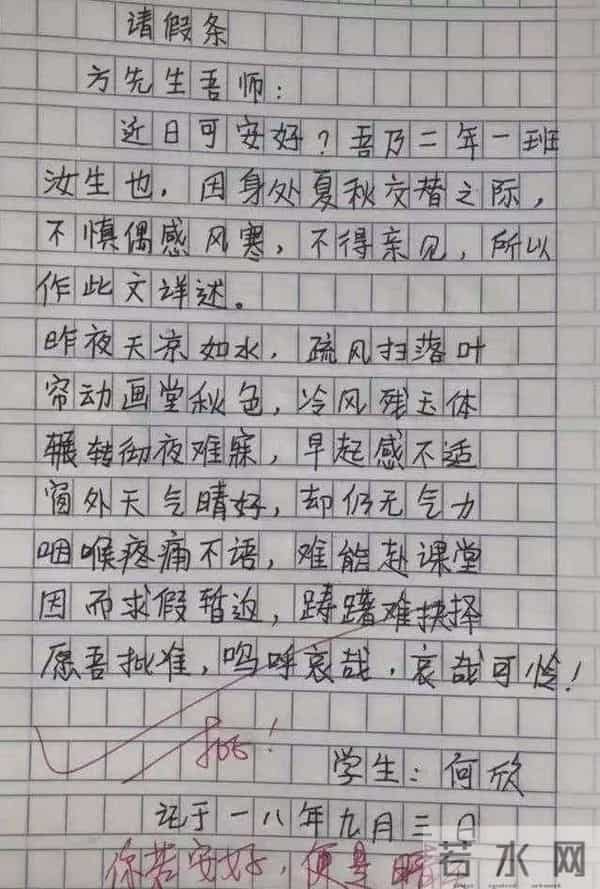 请假条
方先生吾师：
近日可安好？吾乃二年一班
汝生也，因身处夏秋交替之际，
不慎偶感风寒，不得亲见，所以
作此文详述。
昨夜天凉如水，疏风扫落叶
帘动画堂秋色，冷风残玉体
辗转彻夜难寐，早起感不适
窗外天气晴好，却仍无气力
咽喉疼痛不语，难能赴课堂
因而求假暂边，踌躇难抉择
愿吾批准，呜呼哀哉，哀哉可怜！
批！
学生：何欣
记于一八年九月三日
你若安好，便是晴
若水网